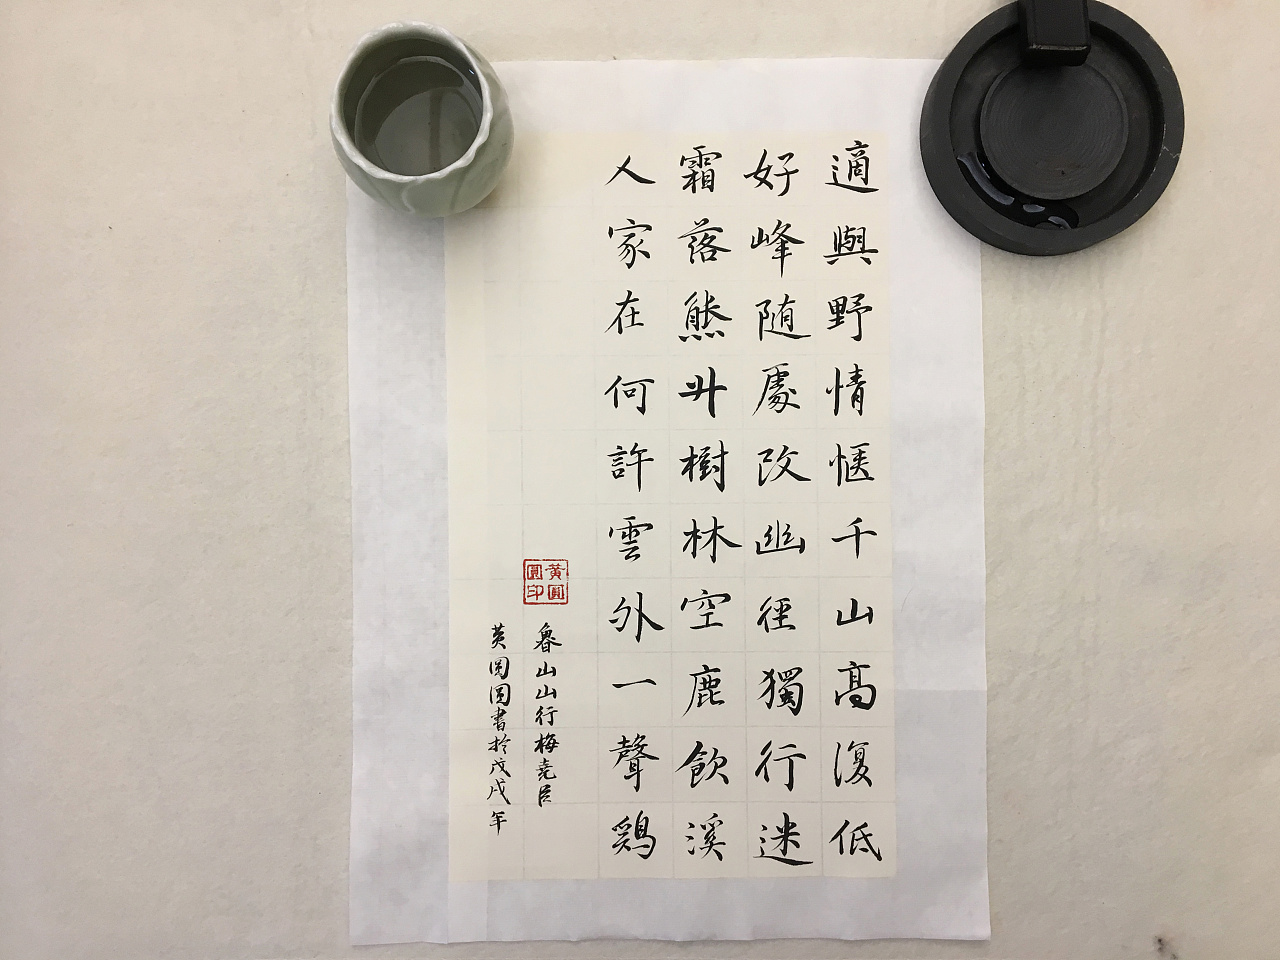 適與野情愜千山高復低
好峰随處改幽徑獨行迷
霜落熊升樹林空鹿飲溪
人家在何許雲外一聲鷄
魯山山行梅堯臣
黄圆圆書於戊戌年
黄圓圓印